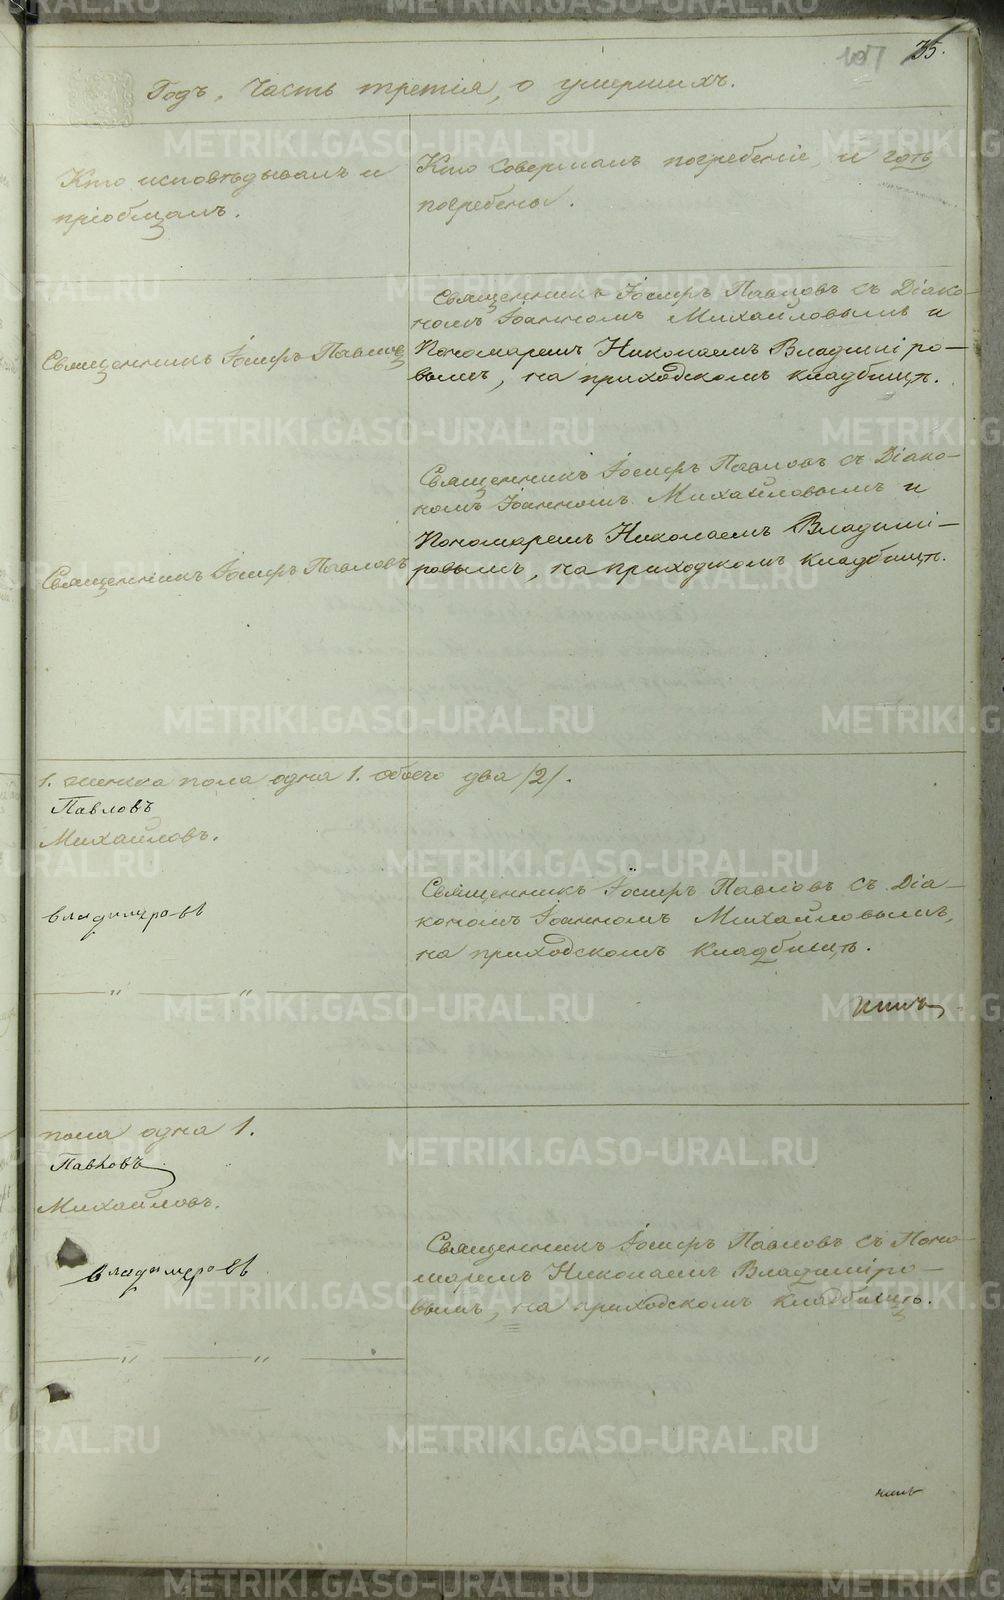 107 35.
Годъ, Часть третія, о умершихъ.
Кто исповѣдывалъ и
пріобщалъ.
Кто совершалъ погребеніе, и гдѣ
погребены.
Священникъ Іосифъ Павловъ
Священникъ Іосифъ Павловъ съ Діако-
номъ Іоанномъ Михайловымъ и
Пономаремъ Николаемъ Владиміро-
вымъ, на приходскомъ кладбищѣ.
Священникъ Іосифъ Павловъ
Священникъ Іосифъ Павловъ съ Діако-
номъ Іоанномъ Михайловымъ и
Пономаремъ Николаемъ Владимі-
ровымъ, на приходскомъ кладбищѣ.
1. женска пола одна 1. обоего два /2/.
Павловъ
Михайловъ.
Владимировъ
Священникъ Іосифъ Павловъ съ Діа-
кономъ Іоанномъ Михайловымъ,
на приходскомъ кладбищѣ.
пола одна 1.
Павловъ
Михайловъ.
Владимеровъ
Священникъ Іосифъ Павловъ съ Поно-
маремъ Николаемъ Владиміро-
вымъ, на приходскомъ кладбищѣ.
METRIKI.GASO-URAL.RU